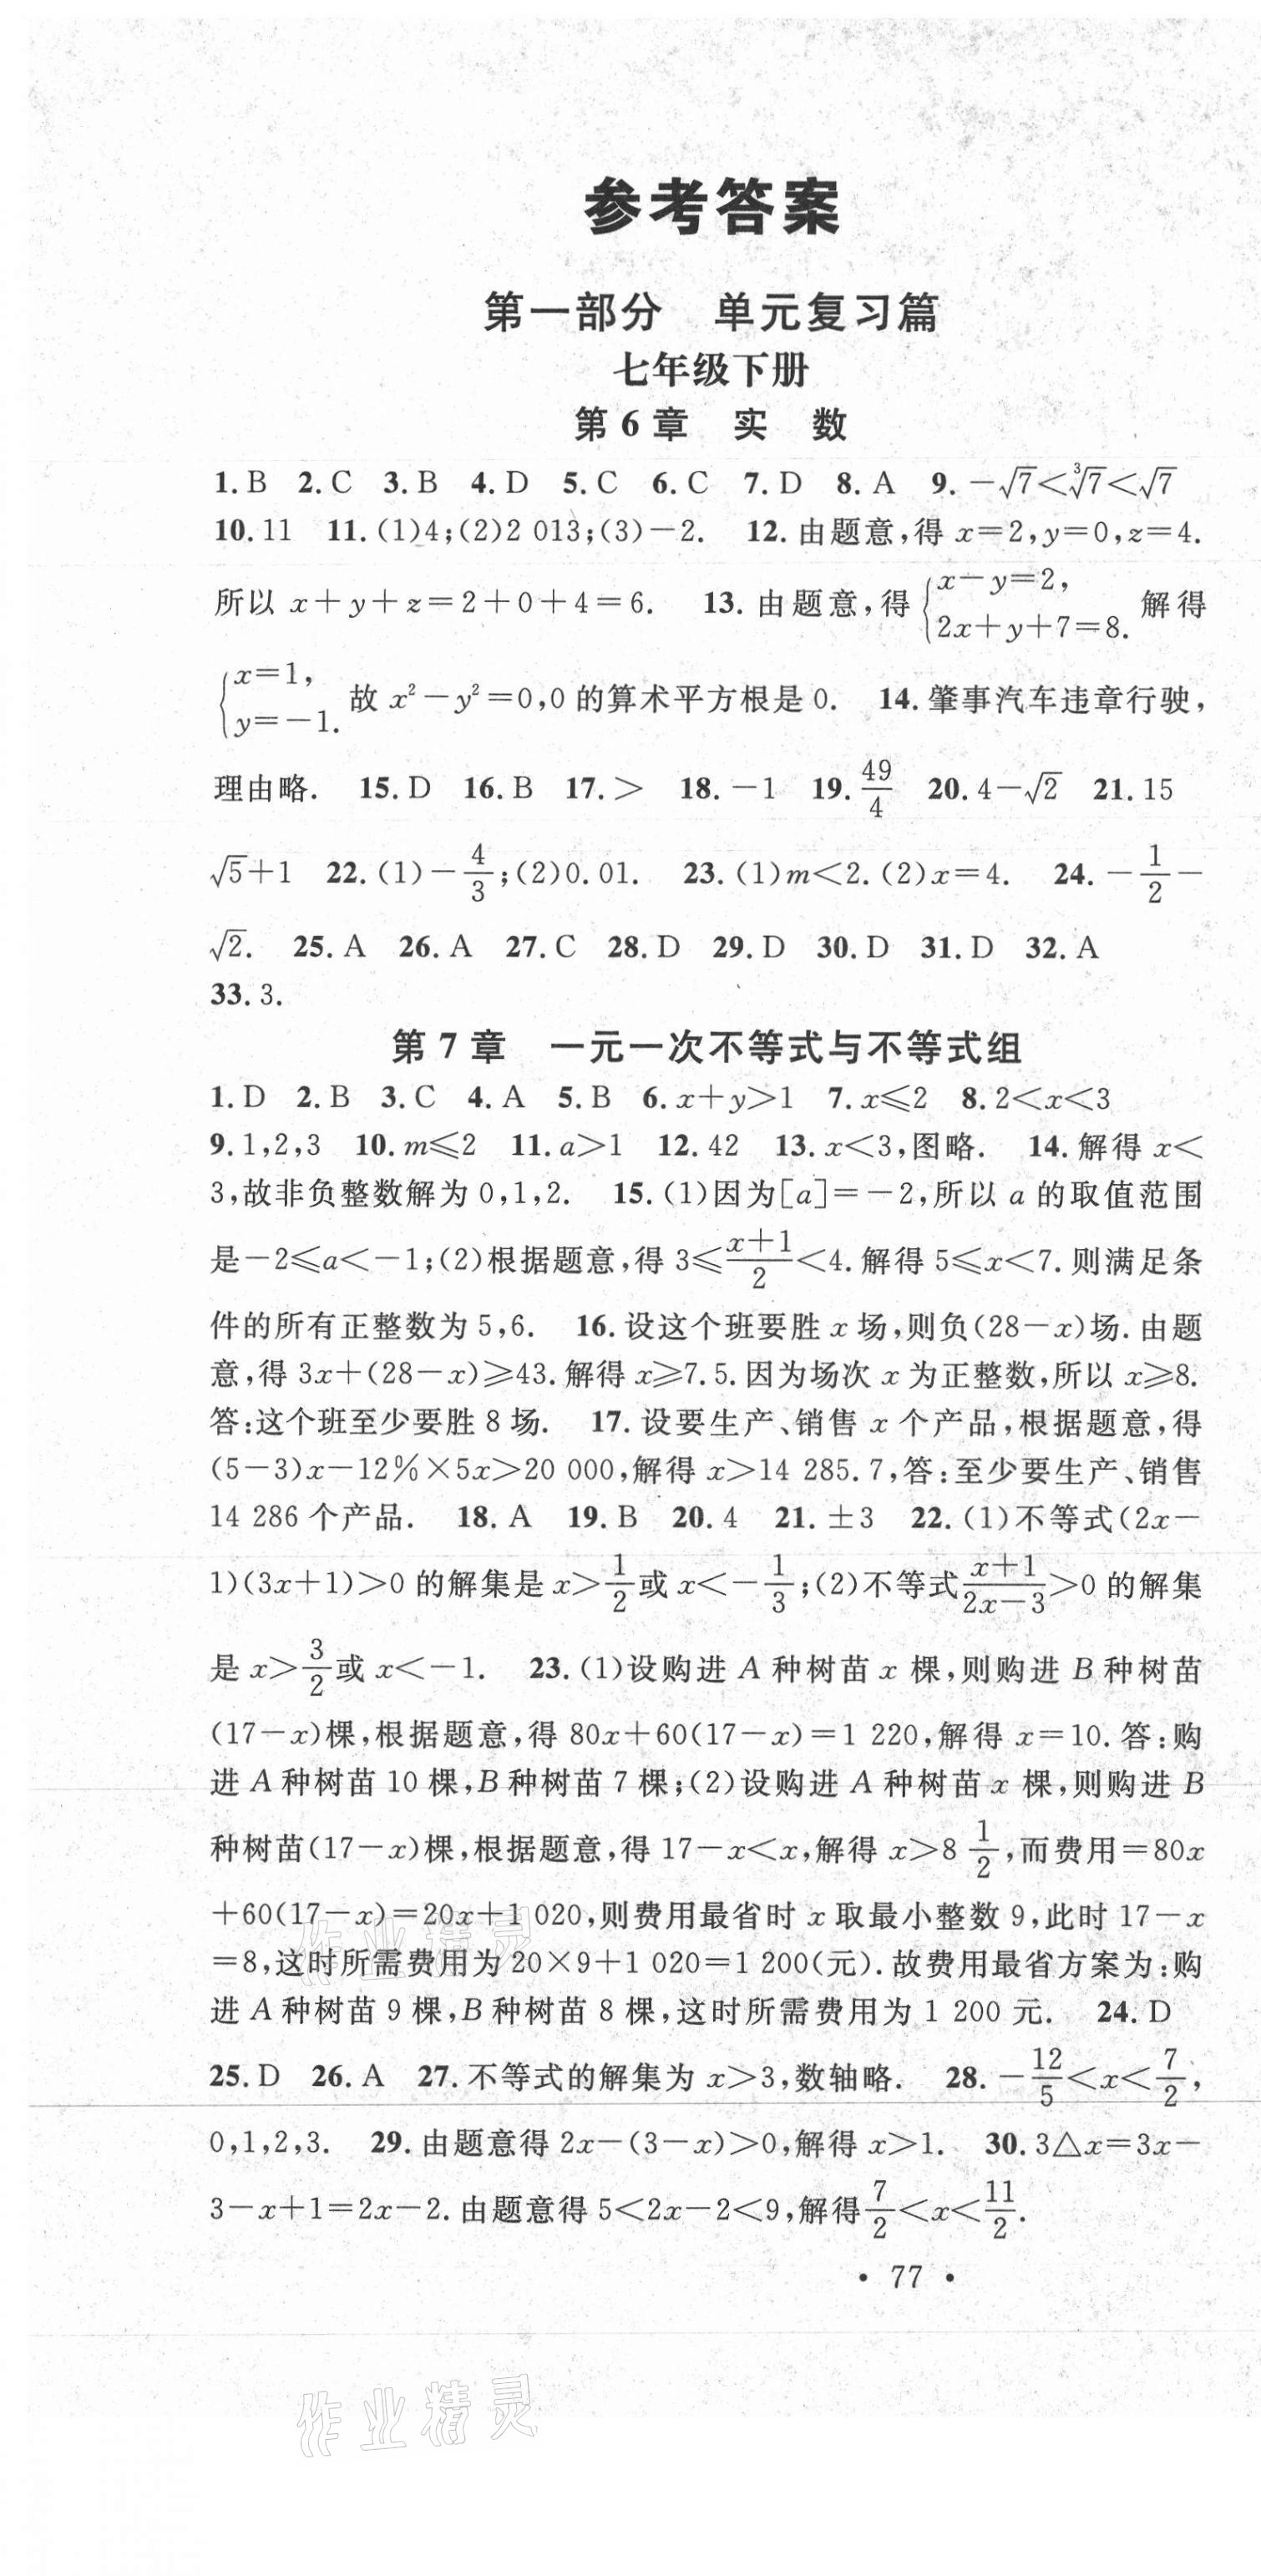 参考答案
第一部分　单元复习篇
七年级下册
第 6 章　实　数
1. B　2. C　3. B　4. D　5. C　6. C　7. D　8. A　9. －√7＜∛7＜√7
10. 11　11. (1)4；(2)2 013；(3)－2.　12. 由题意，得 x＝2，y＝0，z＝4.
所以 x＋y＋z＝2＋0＋4＝6.　13. 由题意，得 {x－y＝2， 2x＋y＋7＝8. 解得
{x＝1， y＝－1. 故 x²－y²＝0，0 的算术平方根是 0.　14. 肇事汽车违章行驶，
理由略.　15. D　16. B　17. ＞　18. －1　19. 49/4　20. 4－√2　21. 15
√5＋1　22. (1)－4/3；(2)0. 01.　23. (1)m＜2. (2)x＝4.　24. －1/2－
√2.　25. A　26. A　27. C　28. D　29. D　30. D　31. D　32. A
33. 3.
第 7 章　一元一次不等式与不等式组
1. D　2. B　3. C　4. A　5. B　6. x＋y＞1　7. x≤2　8. 2＜x＜3
9. 1，2，3　10. m≤2　11. a＞1　12. 42　13. x＜3，图略.　14. 解得 x＜
3，故非负整数解为 0，1，2.　15. (1)因为[a]＝－2，所以 a 的取值范围
是－2≤a＜－1；(2)根据题意，得 3≤(x＋1)/2＜4. 解得 5≤x＜7. 则满足条
件的所有正整数为 5，6.　16. 设这个班要胜 x 场，则负(28－x)场. 由题
意，得 3x＋(28－x)≥43. 解得 x≥7. 5. 因为场次 x 为正整数，所以 x≥8.
答：这个班至少要胜 8 场.　17. 设要生产、销售 x 个产品，根据题意，得
(5－3)x－12％×5x＞20 000，解得 x＞14 285. 7，答：至少要生产、销售
14 286 个产品.　18. A　19. B　20. 4　21. ±3　22. (1)不等式(2x－
1)(3x＋1)＞0 的解集是 x＞1/2或 x＜－1/3；(2)不等式(x＋1)/(2x－3)＞0 的解集
是 x＞3/2或 x＜－1.　23. (1)设购进 A 种树苗 x 棵，则购进 B 种树苗
(17－x)棵，根据题意，得 80x＋60(17－x)＝1 220，解得 x＝10. 答：购
进 A 种树苗 10 棵，B 种树苗 7 棵；(2)设购进 A 种树苗 x 棵，则购进 B
种树苗(17－x)棵，根据题意，得 17－x＜x，解得 x＞8 1/2，而费用＝80x
＋60(17－x)＝20x＋1 020，则费用最省时 x 取最小整数 9，此时 17－x
＝8，这时所需费用为 20×9＋1 020＝1 200(元). 故费用最省方案为：购
进 A 种树苗 9 棵，B 种树苗 8 棵，这时所需费用为 1 200 元.　24. D
25. D　26. A　27. 不等式的解集为 x＞3，数轴略.　28. －12/5＜x＜7/2，
0，1，2，3.　29. 由题意得 2x－(3－x)＞0，解得 x＞1.　30. 3△x＝3x－
3－x＋1＝2x－2. 由题意得 5＜2x－2＜9，解得7/2＜x＜11/2.
• 77 •
作业精灵
作业精灵